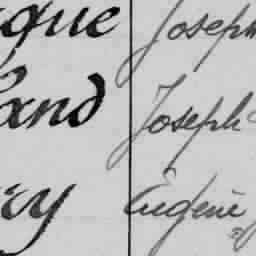 que Joseph
and Joseph
ry Eugène